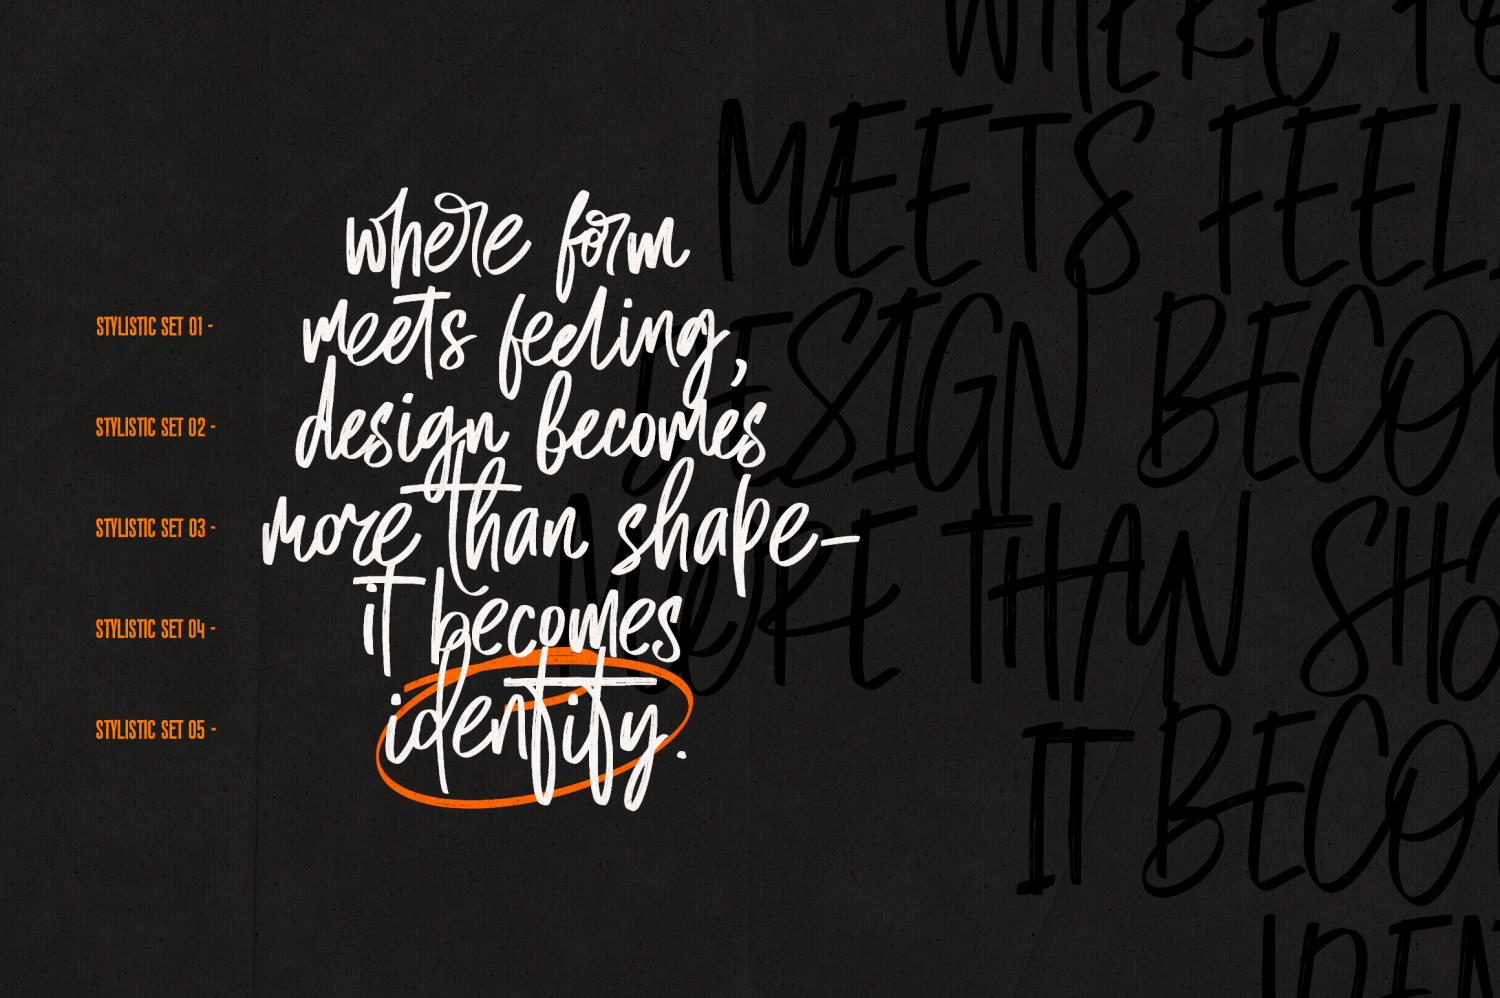 where form
meets feeling,
design becomes
more than shape–
it becomes
identity.
STYLISTIC SET 01 -
STYLISTIC SET 02 -
STYLISTIC SET 03 -
STYLISTIC SET 04 -
STYLISTIC SET 05 -
WHERE
MEETS FEEL
DESIGN BECO
MORE THAN SH
IT BECO
IDEN